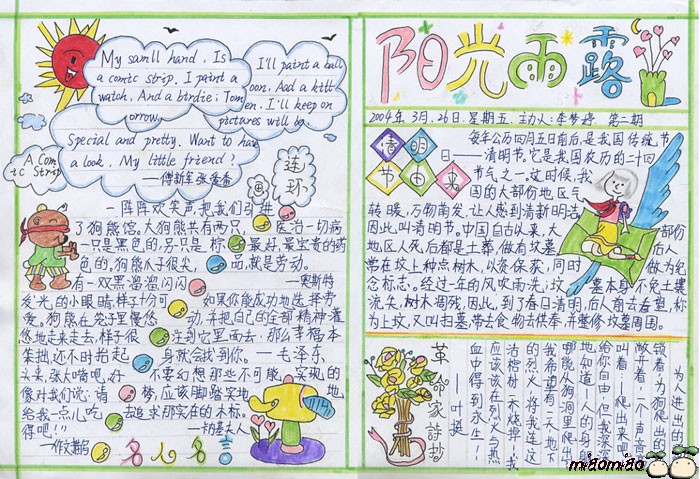 My samll hand. Is
a comic strip. I paint a
watch. And a birdie; Tom
orrow,
I'll paint a ball
oon. Aad a kitt
en. I'll keep on
pictures will be
Special and pretty. Want to have
a look. My little friend?
A Com
ic Strip
连
环
一阵阵欢笑声,把我们引进
了狗熊馆。大狗熊共有两只
一只是黑色的,另只是棕
色的。狗熊个子很大,
有一双黑溜溜闪闪
发光的小眼睛,样子十分可
爱。狗熊在笼子里慢悠
悠地走来走去,样子很
笨拙,还不时抬起
头来,张大嘴吧,好
像对我们说:请
给我一点儿吃
得吧!!
医治一切病
最好,最宝贵的药
品,就是劳动。
——奥斯特
如果你能成功地选择劳
动,并把自己的全部精神灌
注到它里面去,那么幸福本
身就会找到你。
不要幻想那些不可能实现的
梦,应该脚踏实地地
去追求那实在的木标。
名人名言
阳光雨露
2004年3月26日.星期五.主办人:李梦婷 第二期
清明
节由来
每年公历四月五日前后,是我国传统节
日——清明节。它是我国农历的二十四
节气之一。这时候,我
国的大部份地区气
转暖,万物萌发,让人感到清新明洁
因此,叫清明节。中国自古以来,大部份
地区人死后都是土葬,做有坟墓,后人
常在坟上种点树木,以资保荻,同时做为纪
念标志。经过一年的风吹雨洗,坟墓本身不免土壤
流失,树木凋残,因此,到了春日清明,后人前去看望,称
为上坟,又叫扫墓,带去食物去供奉,并整修坟墓周围。
革命家诗抄
——叶挺
为人进出的
锁着,为狗爬出的
敞开着,一个声音高
叫着:爬出来吧
给你自由!但我深深
地知道——人的身躯
哪能从狗洞里爬出
我希望有一天,地下
的烈火,将我连这
活棺材一齐烧掉!我
应该在烈火与热
血中得到永生!
miaomiao